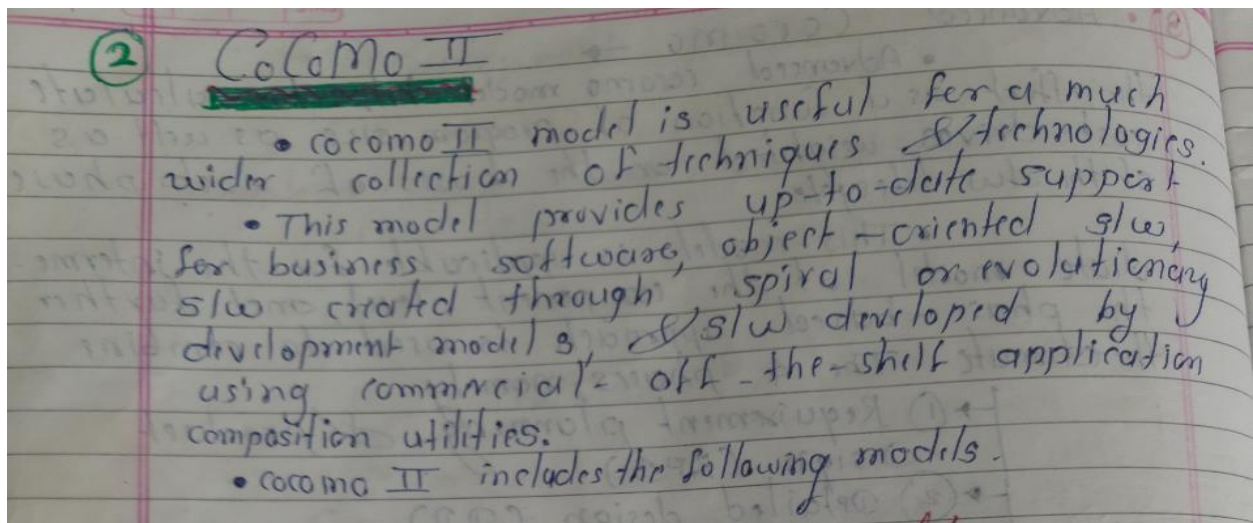 2 CoCoMo II
• cocomo II model is useful for a much
wider collection of techniques & technologies.
• This model provides up-to-date support
for business software, object-oriented s/w,
s/w created through spiral or evolutionary
development models, & s/w developed by
using commercial-off-the-shelf application
composition utilities.
• cocomo II includes the following models.